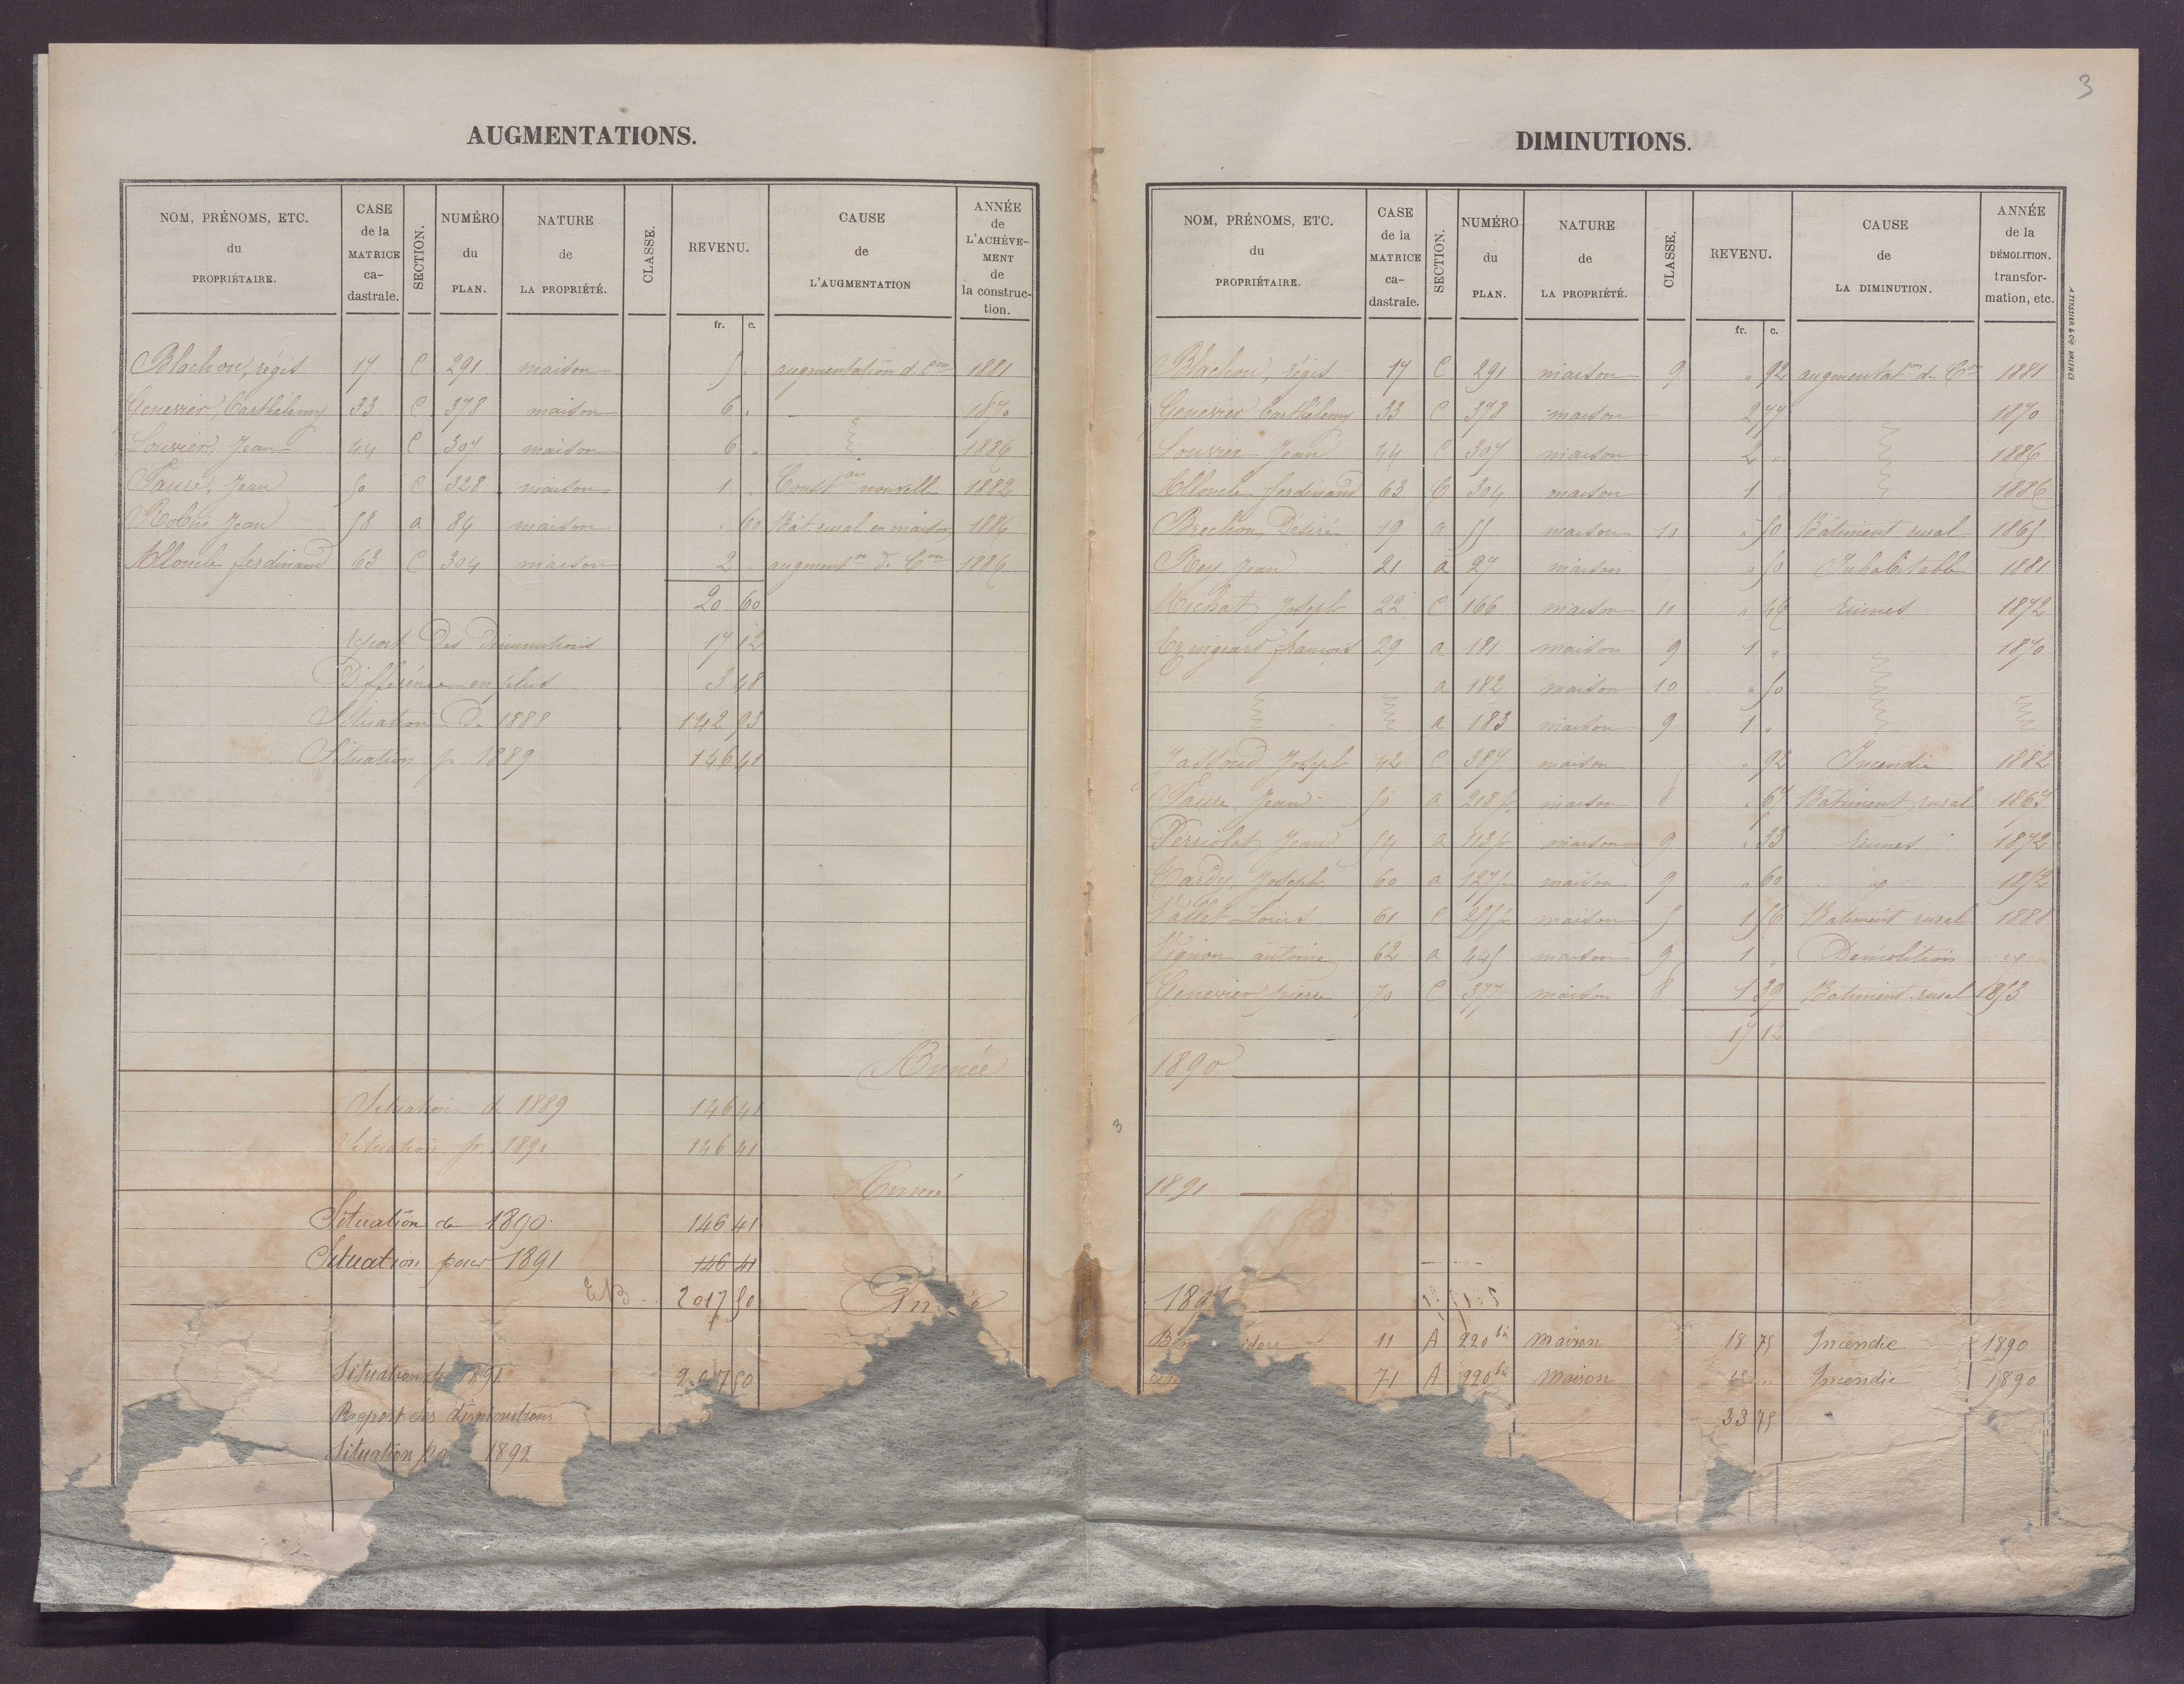 3
AUGMENTATIONS.
NOM, PRÉNOMS, ETC. du PROPRIÉTAIRE. | CASE de la MATRICE ca-dastrale. | SECTION. | NUMÉRO du PLAN. | NATURE de LA PROPRIÉTÉ. | CLASSE. | REVENU. fr. c. | CAUSE de L'AUGMENTATION | ANNÉE de L'ACHÈVE-MENT de la construc-tion.
Blachon, régis 17 C 291 maison 5 " augmentation de Con 1881
Genevier, Barthélemy 33 C 378 maison 6 " 1870
Louvier, Jean 44 C 307 maison 6 " 1886
Faure, Jean 50 C 328 maison 1 " Conston nouvelle 1882
Robin Jean 58 a 84 maison " 60 Bât. rural en maison 1886
Alloncle ferdinand 63 C 304 maison 2 " augmentn de Con 1886
20 60
Report des diminutions 17 12
Différence en plus 3 48
Situation de 1888 142 93
Situation pr 1889 146 41
Année
Situation de 1889 146 41
Situation pr 1890 146 41
Année
Situation de 1890. 146 41
Situation pour 1891 146 41
2017 50
Situation de 1891 2017 50
Report des diminutions
Situation 1892
DIMINUTIONS.
NOM, PRÉNOMS, ETC. du PROPRIÉTAIRE. | CASE de la MATRICE ca-dastrale. | SECTION. | NUMÉRO du PLAN. | NATURE de LA PROPRIÉTÉ. | CLASSE. | REVENU. fr. c. | CAUSE de LA DIMINUTION. | ANNÉE de la DÉMOLITION. transfor-mation, etc.
Blachon, régis 17 C 291 maison 9 " 92 augmentaton de Con 1881
Genevier Barthélemy 33 C 378 maison 2 77 1870
Louvier Jean 44 C 307 maison 2 " 1886
Alloncle ferdinand 63 C 304 maison 1 " 1886
Brechon, Désiré 19 a 55 maison 10 " 50 Bâtiment rural 1865
Rey Jean 21 a 27 maison " 50 Inhabitable 1881
Michat Joseph 22 C 166 maison 10 " 46 ruines 1872
françois 29 a 181 maison 9 1 " 1870
a 182 maison 10 " 50
a 183 maison 9 1 "
Joseph 42 C 387 maison " 92 Incendie 1882
Faure Jean 50 a 218 p. maison 8 " 67 Bâtiment rural 1867
Perriolat Jean 54 a 113 p. maison 9 " 33 ruines 1872
Joseph 60 a 127 p maison 9 " 60 1852
Vallet Louis 61 C 255 p. maison 5 1 56 Batiment rural 1888
Vignon antoine 62 a 445 maison 9 1 " Démolition
Genevier pierre 70 C 377 maison 8 1 39 Bâtiment rural 1853
17 12
1890
3
1891
11 A 220 bis maison 18 75 Incendie 1890
71 A 220 bis maison 15 " Incendie 1890
33 75